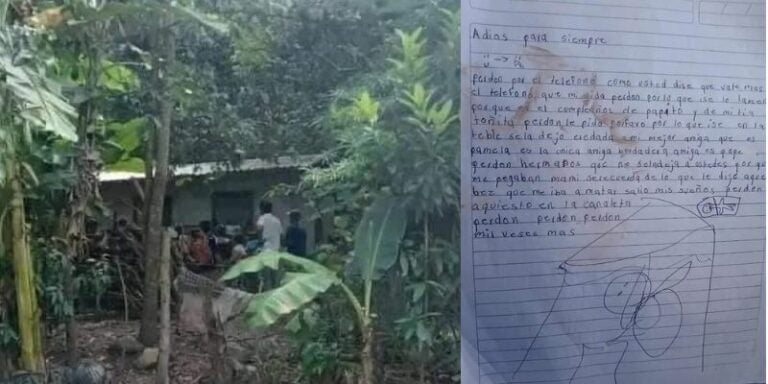 Adios para siempre
perdon por el telefono como usted dise que vale mas
el telefono que mi vida perdon por lo que ise lo lamen
porque es el cumpleaños de papito y de mi tia
toñita perdon le pido porfavor por lo que ise en la
teble se la dejo mi mejor amiga que es
pamela es la unica amiga berdadera amiga es
perdon hermanos que no se la deja a ustedes por que
me pegaban mami se recuerda de lo que le dije aque
bez que me iba a matar salio mis sueños perdon
aqui esto en la canaleta
perdon perdon perdon
mil veses mas